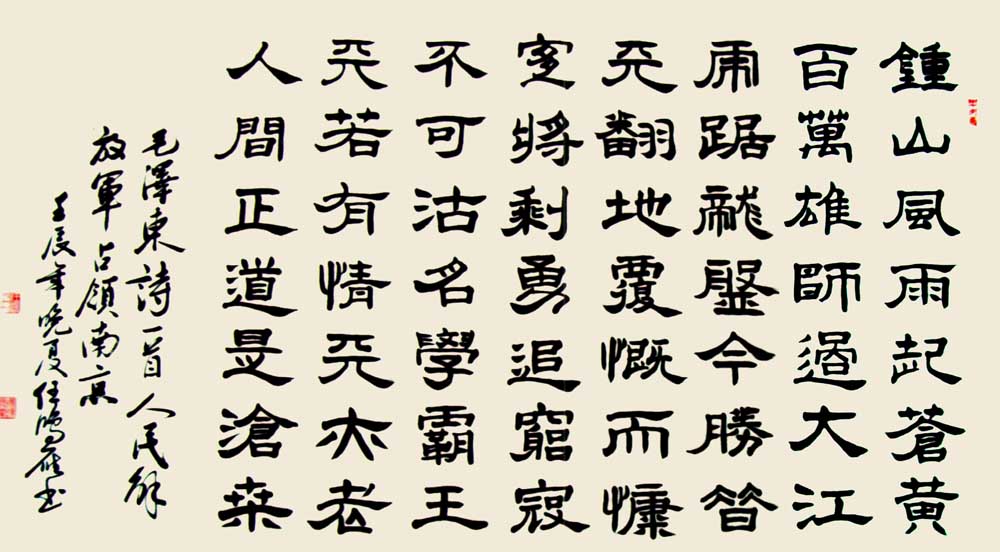 鍾山風雨起蒼黃
百萬雄師過大江
虎踞龍盤今勝昔
天翻地覆慨而慷
宜將剩勇追窮寇
不可沽名學霸王
天若有情天亦老
人間正道是滄桒
毛澤東詩一首人民解
放軍占領南京
壬辰年晚夏任鴻雁书